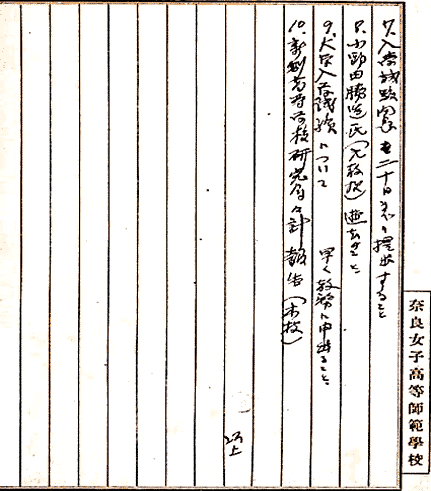 7. 入学試験問題を二十日までに提出すること
8. 小野田勝造氏(元教授)逝去のこと
9. 大学入学試験について 早く教務に申出ること
10. 新制高等学校研究会会計報告(本校)
以上
奈良女子高等師範學校